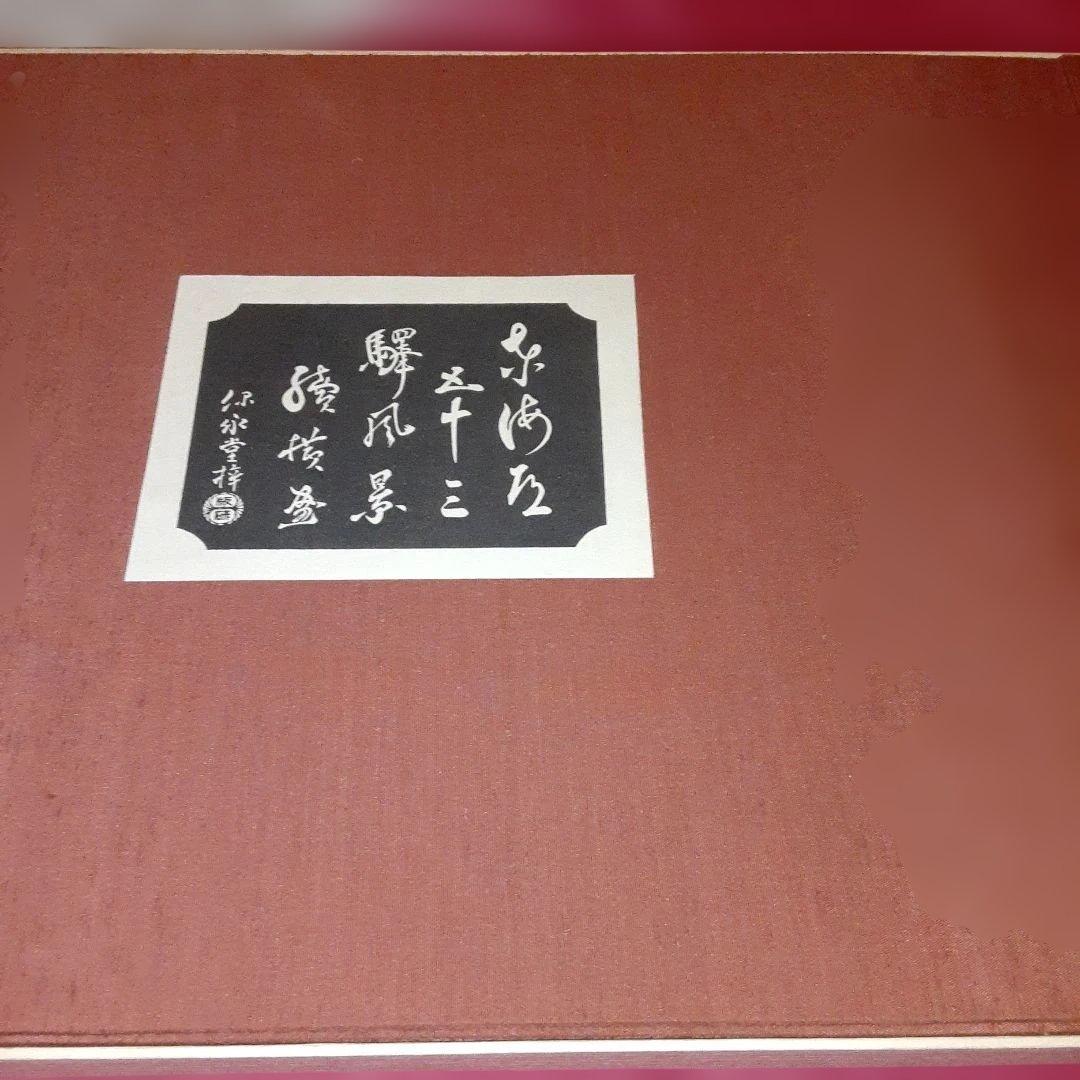 東海道
五十三
驛風景
續横畫
保永堂梓